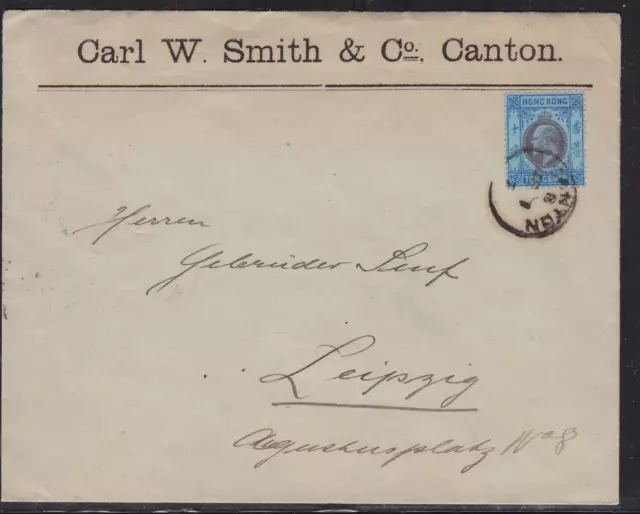 Carl W. Smith & Co., Canton.
HONG KONG
十
香港
TEN CENTS
CANTON
Herren
Gebrüder Senf
Leipzig
Augustusplatz No 8